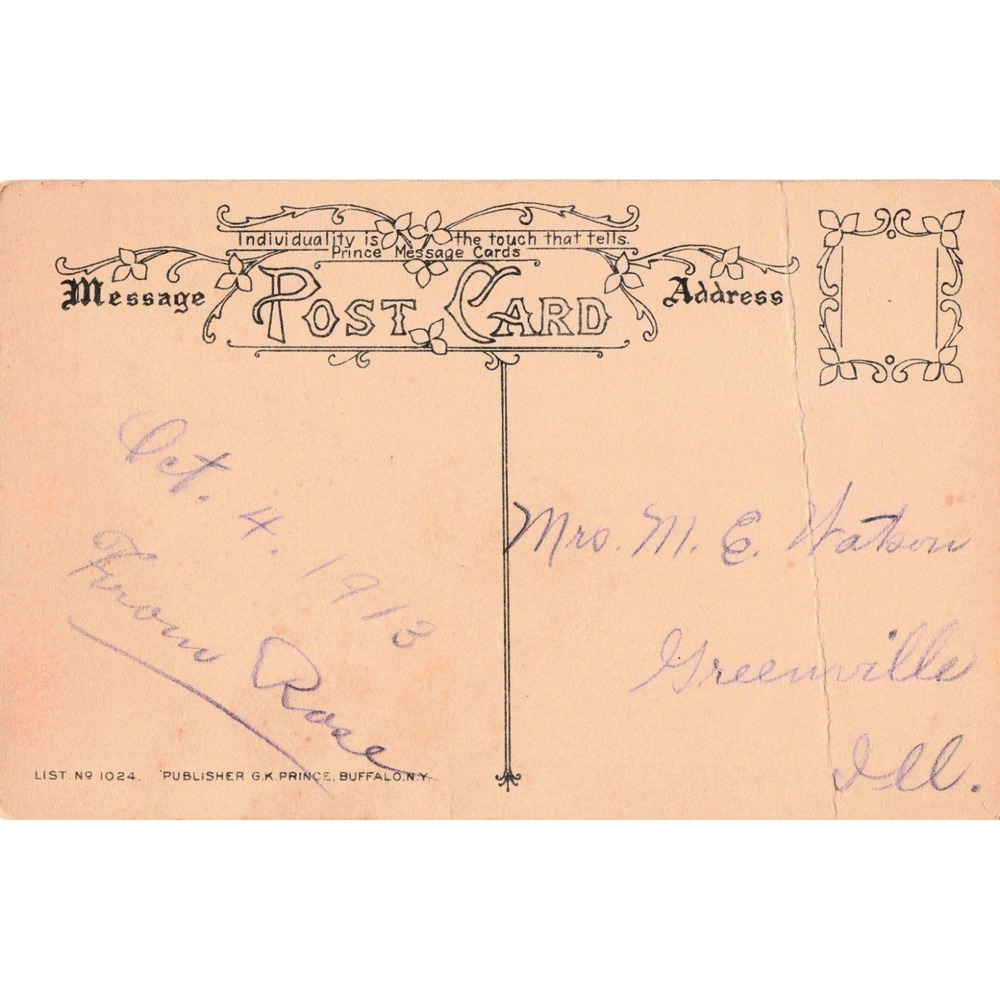 Individuality is the touch that tells.
Prince Message Cards
Message
POST CARD
Address
Oct. 4. 1913
From Rose
Mrs. M. E. Watson
Greenville
Ill.
LIST. No 1024. PUBLISHER G.K. PRINCE, BUFFALO, N.Y.